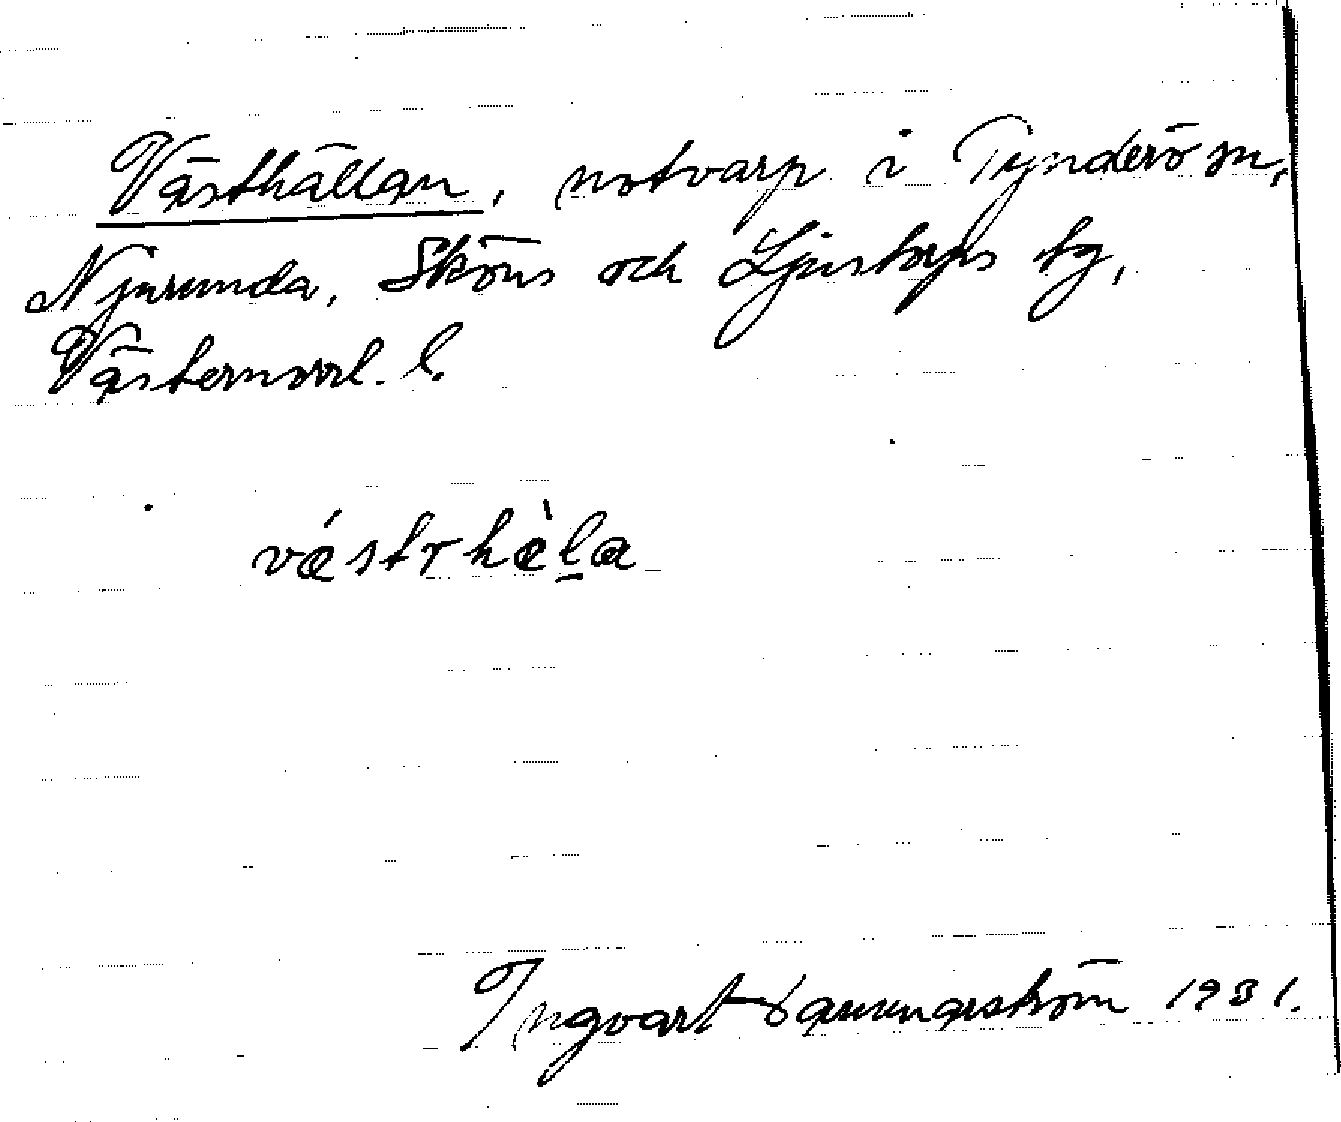 Västhällan, notvarp i Tynderö sn,
Njurunda, Sköns och Ljustorps tg,
Västernorrl. l.
væ´strhæ`l̲a
Ingvart 1931.